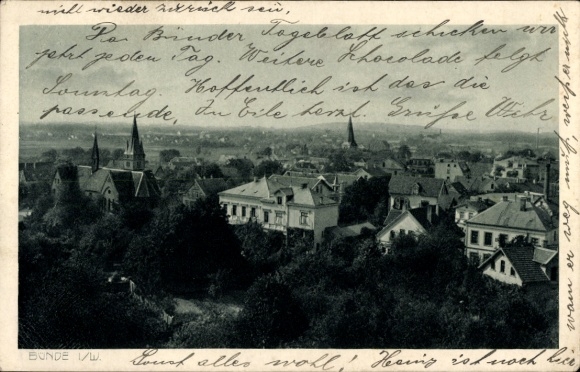 will wieder zurück sein.
Das Bünder Tageblatt schicken wir
jetzt jeden Tag. Weitere Schocolade folgt
Sonntag. Hoffentlich ist das die
passende. In Eile herzl. Grüße
BÜNDE i/W.
Sonst alles wohl! Heinz ist noch hier
wann er weg muß,